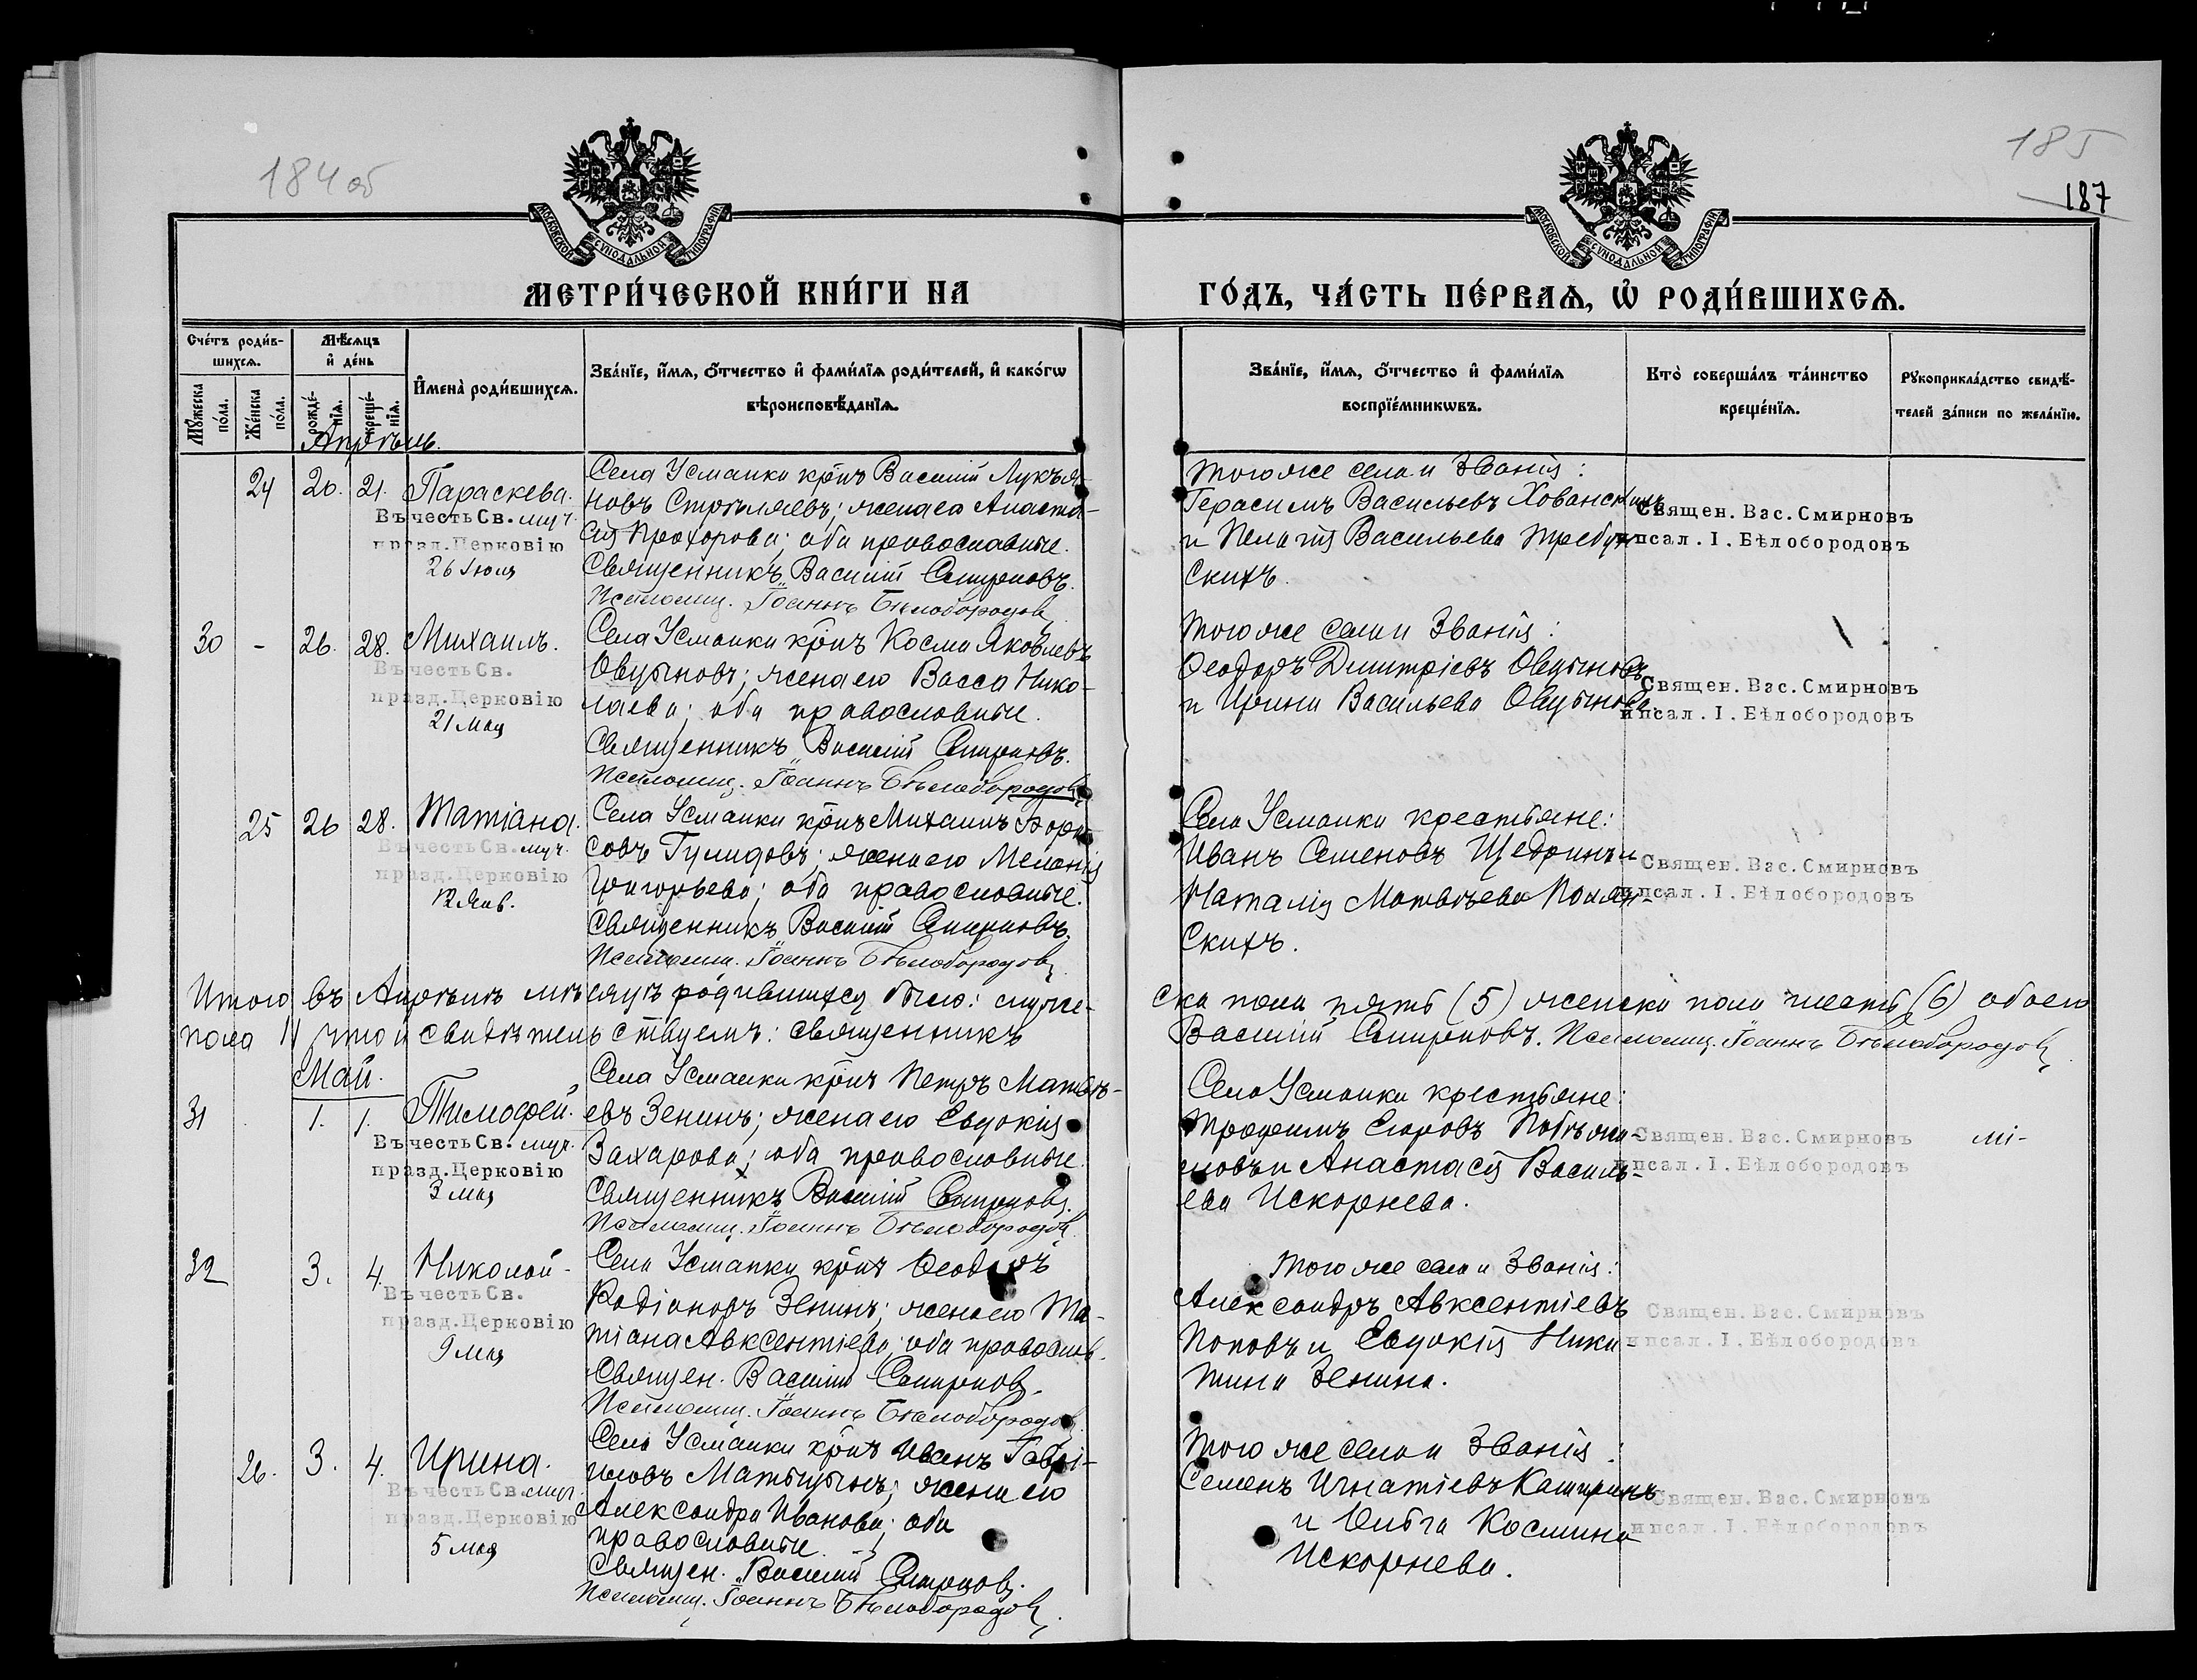 184 об
185
187
МОСКОВСКОЙ СѴНОДАЛЬНОЙ ТИПОГРАФІИ
МОСКОВСКОЙ СѴНОДАЛЬНОЙ ТИПОГРАФІИ
МЕТРИ́ЧЕСКОЙ КНИ́ГИ НА
ГО́ДЪ, ЧА́СТЬ ПЕ́РВАѦ, Ѡ҆ РОДИ́ВШИХСѦ.
Сче́тъ роди́в-
шихсѧ.
Мѣ́сѧцъ
и҆ де́нь
Мꙋ́жеска
по́ла.
Же́нска
по́ла.
рожде́-
нїѧ.
креще́-
нїѧ.
И҆мена̀ роди́вшихсѧ.
Зва́нїе, и҆́мѧ, ѻ҆́тчество и҆ фами́лїѧ роди́телей, и҆ како́гѡ
вѣроисповѣ́данїѧ.
Зва́нїе, и҆́мѧ, ѻ҆́тчество и҆ фами́лїѧ
воспрїе́мникѡвъ.
Кто̀ соверша́лъ та́инство
креще́нїѧ.
Рꙋкоприкла́дство свидѣ́-
телей за́писи по жела́нїю.
Апрѣль.
24 20. 21. Параскева.
Въ честь Св. муч.
празд. Церковію
26 Іюля
Села Усманки крнъ Василій Лукъя-
новъ Стрѣляевъ; жена его Анаста-
сія Прохорова; оба православные.
Священникъ Василій Смирновъ.
Псаломщ. Іоаннъ Бѣлобородовъ
Того же села и званія:
Герасимъ Васильевъ Хованскихъ
и Пелагія Васильева Требун-
скихъ.
Священ. Вас. Смирновъ
и псал. І. Бѣлобородовъ
30 - 26. 28. Михаилъ.
Въ честь Св.
празд. Церковію
21 мая
Села Усманки крнъ Косма Яковлевъ
Овцыновъ; жена его Васса Нико-
лаева; оба православные.
Священникъ Василій Смирновъ.
Псаломщ. Іоаннъ Бѣлобородовъ
Того же села и званія:
Ѳеодоръ Димитріевъ Овцыновъ
и Ирина Васильева Овцынова.
Священ. Вас. Смирновъ
и псал. І. Бѣлобородовъ
25 26 28. Татіана.
Въ честь Св. муч.
празд. Церковію
12 Янв.
Села Усманки крнъ Михаилъ Бори-
совъ Гулидовъ; жена его Меланія
Григорьева; оба православные.
Священникъ Василій Смирновъ.
Псаломщ. Іоаннъ Бѣлобородовъ
Села Усманки крестьяне:
Иванъ Семеновъ Щедринъ и
Наталія Матвѣева Полян-
скихъ.
Священ. Вас. Смирновъ
и псал. І. Бѣлобородовъ
Итого въ Апрѣлѣ мѣсяцѣ родившихся было: муже-
ска пола пять (5) женска пола шесть (6) обоего
пола 11 что и свидѣтельствуемъ: священникъ
Василій Смирновъ. Псаломщ. Іоаннъ Бѣлобородовъ
Май.
31 1. 1. Тимофей.
Въ честь Св. муч.
празд. Церковію
3 мая
Села Усманки крнъ Петръ Матвѣ-
евъ Зенинъ; жена его Евдокія
Захарова; оба православные.
Священникъ Василій Смирновъ.
Псаломщ. Іоаннъ Бѣлобородовъ
Села Усманки крестьяне:
Трофимъ Егоровъ
и Анастасія Василь-
ева Искорнева.
Священ. Вас. Смирновъ
и псал. І. Бѣлобородовъ
32 3. 4. Николай
Въ честь Св.
празд. Церковію
9 мая
Села Усманки крнъ Ѳеодоръ
Родіоновъ Зенинъ; жена его Та-
тіана Авксентіева; оба православ.
Священ. Василій Смирновъ.
Псаломщ. Іоаннъ Бѣлобородовъ
Того же села и званія:
Александръ Авксентіевъ
Поповъ и Евдокія Ники-
тина Зенина.
Священ. Вас. Смирновъ
и псал. І. Бѣлобородовъ
26. 3. 4. Ирина.
Въ честь Св. муч.
празд. Церковію
5 мая
Села Усманки крнъ Иванъ Гаврі-
иловъ Матыцынъ; жена его
Александра Иванова; оба
православные.
Священ. Василій Смирновъ.
Псаломщ. Іоаннъ Бѣлобородовъ.
Того же села и званія:
Семенъ Игнатіевъ Каширинъ
и Ольга Космина
Искорнева.
Священ. Вас. Смирновъ
и псал. І. Бѣлобородовъ